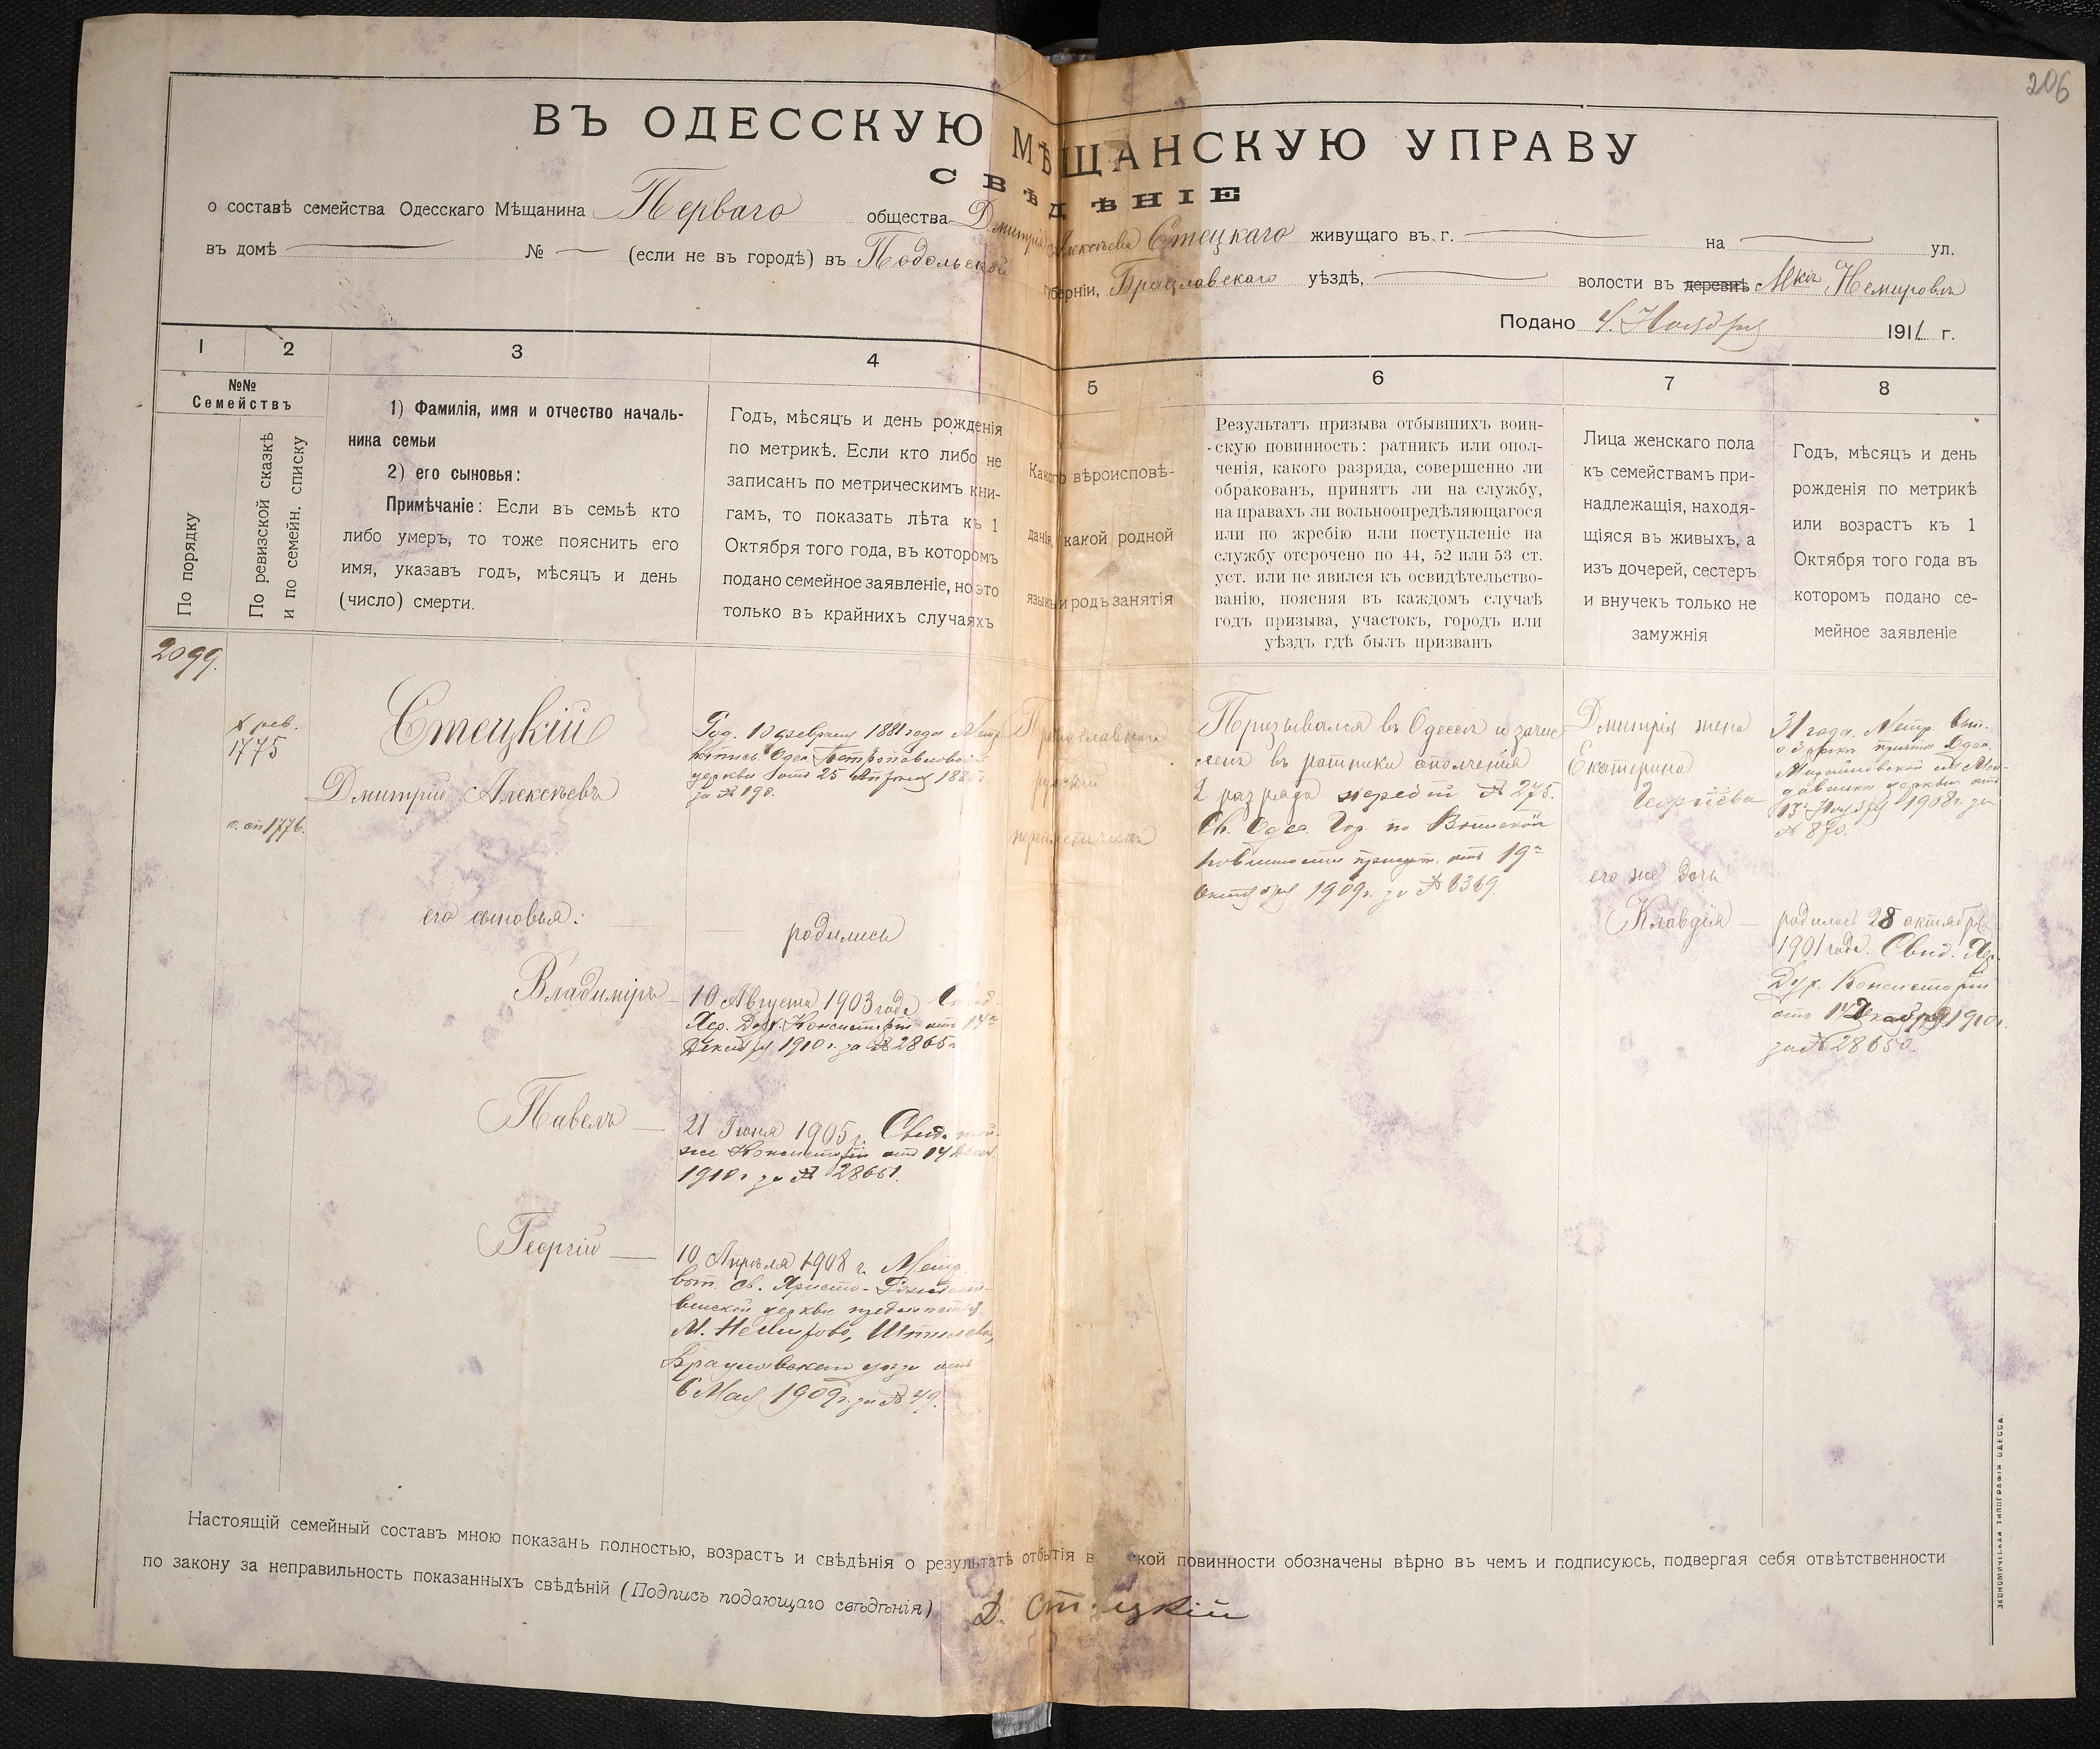 206
ВЪ ОДЕССКУЮ МѢЩАНСКУЮ УПРАВУ
СВѢДѢНІЕ
о составѣ семейства Одесскаго Мѣщанина Перваго общества Дмитрія Алексѣева Стецкаго живущаго въ г. на ул.
въ домѣ № (если не въ городѣ) въ Подольской губерніи, Брацлавскаго уѣздѣ, волости въ деревнѣ Мкѣ Немировѣ
Подано 4 Ноября 1911 г.
1 2 3 4 5 6 7 8
№№
Семействъ
По порядку
По ревизской сказкѣ
и по семейн. списку
1) Фамилія, имя и отчество началь-
ника семьи
2) его сыновья:
Примѣчаніе: Если въ семьѣ кто
либо умеръ, то тоже пояснить его
имя, указавъ годъ, мѣсяцъ и день
(число) смерти.
Годъ, мѣсяцъ и день рожденія
по метрикѣ. Если кто либо не
записанъ по метрическимъ кни-
гамъ, то показать лѣта къ 1
Октября того года, въ которомъ
подано семейное заявленіе, но это
только въ крайнихъ случаяхъ
Какого вѣроисповѣ-
данія, какой родной
языкъ и родъ занятія
Результатъ призыва отбывшихъ воин-
скую повинность: ратникъ или опол-
ченія, какого разряда, совершенно ли
обракованъ, принятъ ли на службу,
на правахъ ли вольноопредѣляющагося
или по жребію или поступленіе на
службу отсрочено по 44, 52 или 53 ст.
уст. или не явился къ освидѣтельство-
ванію, поясняя въ каждомъ случаѣ
годъ призыва, участокъ, городъ или
уѣздъ гдѣ былъ призванъ
Лица женскаго пола
къ семействамъ при-
надлежащія, находя-
щіяся въ живыхъ, а
изъ дочерей, сестеръ
и внучекъ только не
замужнія
Годъ, мѣсяцъ и день
рожденія по метрикѣ
или возрастъ къ 1
Октября того года въ
которомъ подано се-
мейное заявленіе
2099.
X рев.
1775
с. сп 1776.
Стецкій
Дмитрій Алексѣевъ
Род. 10 февраля 1881 года Метр.
Одес. Петропавловской
церкви отъ 25 Апрѣля
за № 190.
Православнаго
русскій
переплетчикъ
Призывался въ Одессѣ и зачис
ленъ въ ратники ополченія
2 разряда жребій № 275.
Св. Одес. Гор. по Воинской
повинности присут. отъ 19го
октября 1909 г. за № 6369.
Дмитрія жена
Екатерина
Георгіева
31 года. Метр. вып.
причта Одес.
Михайловской
церкви отъ
13 Ноября 1908 г. за
№ 870.
его же дочь
Клавдія
родилась 28 октября
1901 года. Свид. Хер.
Дух. Консисторіи
отъ 14 Декабря 1910 г.
за № 28650.
его сыновья:
родились
Владиміръ
10 Августа 1903 года Свид.
Хер. Дух. Консисторіи отъ 14го
Декабря 1910 г. за №
Павелъ
21 Іюня 1905 г. Свид. той-
же Консисторіи отъ 14 Декаб.
1910 г. за № 28651.
Георгій
10 Апрѣля 1908 г. Метр.
вып. св. Христо-Рождест-
венской церкви предмѣстья
М. Немирова,
Брацлавскаго уѣзда отъ
6 Мая 1909 г. за № 49.
Настоящій семейный составъ мною показанъ полностью, возрастъ и свѣдѣнія о результатѣ отбытія в кой повинности обозначены вѣрно въ чемъ и подписуюсь, подвергая себя отвѣтственности
по закону за неправильность показанныхъ свѣдѣній (Подпись подающаго свѣдѣнія) Д. Стецкій
ЭКОНОМИЧЕСКАЯ ТИПОГРАФІЯ ОДЕССА.